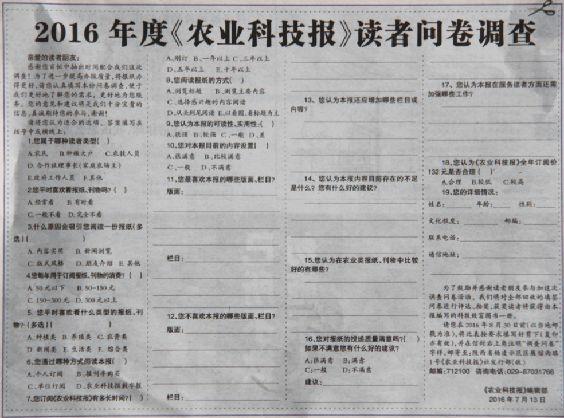 2016年度《农业科技报》读者问卷调查
亲爱的读者朋友:
感谢您长期抽出时间配合我们这次
1.您属于哪种读者类型( )
A.农民 B.种植大户 C.农技人员
D.合作社理事长(家庭农场主)
E.政府工作人员 F.其他
2.您平时喜欢看报纸、刊物吗?( )
A.经常看 B.有时看
C.一般不看 D.完全不看
3.什么原因会吸引您阅读一份报纸(多
选)( )
A.内容实用 B.新闻浏览
C.版式风格 D.朋友介绍 E.其他
4.您每年用于订阅报纸、刊物的消费?( )
A.50元以下 B.50-150元
C.150-300元 D.300元以上
5.您平时喜欢看什么类型的报纸、刊
物?(多选)( )
A.种植类 B.养殖类 C.农资类
D.新闻类 E.生活类 F.综合类
6.您通过哪种方式阅读本报( )
A.个人订阅 B.报刊亭购买
C.单位订阅 D.农业科技报数字报
7.您订阅《农业科技报》有多长时间?( )
A.刚订 B.一年以上 C.三年以上
D.五年以上 E.十年以上
8.您阅读报纸的方式( )
A.浏览标题 B.浏览主要内容
C.选择感兴趣的内容阅读
9.您认为本报的可读性、实用性:( )
A.很强 B.较强 C.一般 D.差
10.您对本报目前的内容设置( )
A.很满意 B.比较满意
C.一般 D.不满意
11.您最喜欢本报的哪些版面、栏目?
版面:
栏目:
12.您不喜欢本报的哪些版面、栏目?
版面:
栏目:
13.您认为本报还应增加哪些栏目或
内容?
14.您认为本报内容目前存在的不足
是什么?您有什么好的建议?
15.您认为在农业类报纸、刊物中比较
好的有哪些?
16.您对报纸的投递质量满意吗?( )
如果不满意您有什么好的建议?
A:很满意 B:满意
C:一般 D:不满意
建议:
17.您认为本报在服务读者方面还需
加强哪些工作?
18.您认为《农业科技报》全年订阅价
132元是否合理( )
A.合理 B.较低 C.较高
19.您的详细情况:
姓名: 年龄: 性别:
文化程度: 邮编:
联系电话:
通信地址:
邮编:712100 咨询电话:029-87031766
《农业科技报》编辑部
2016年7月13日